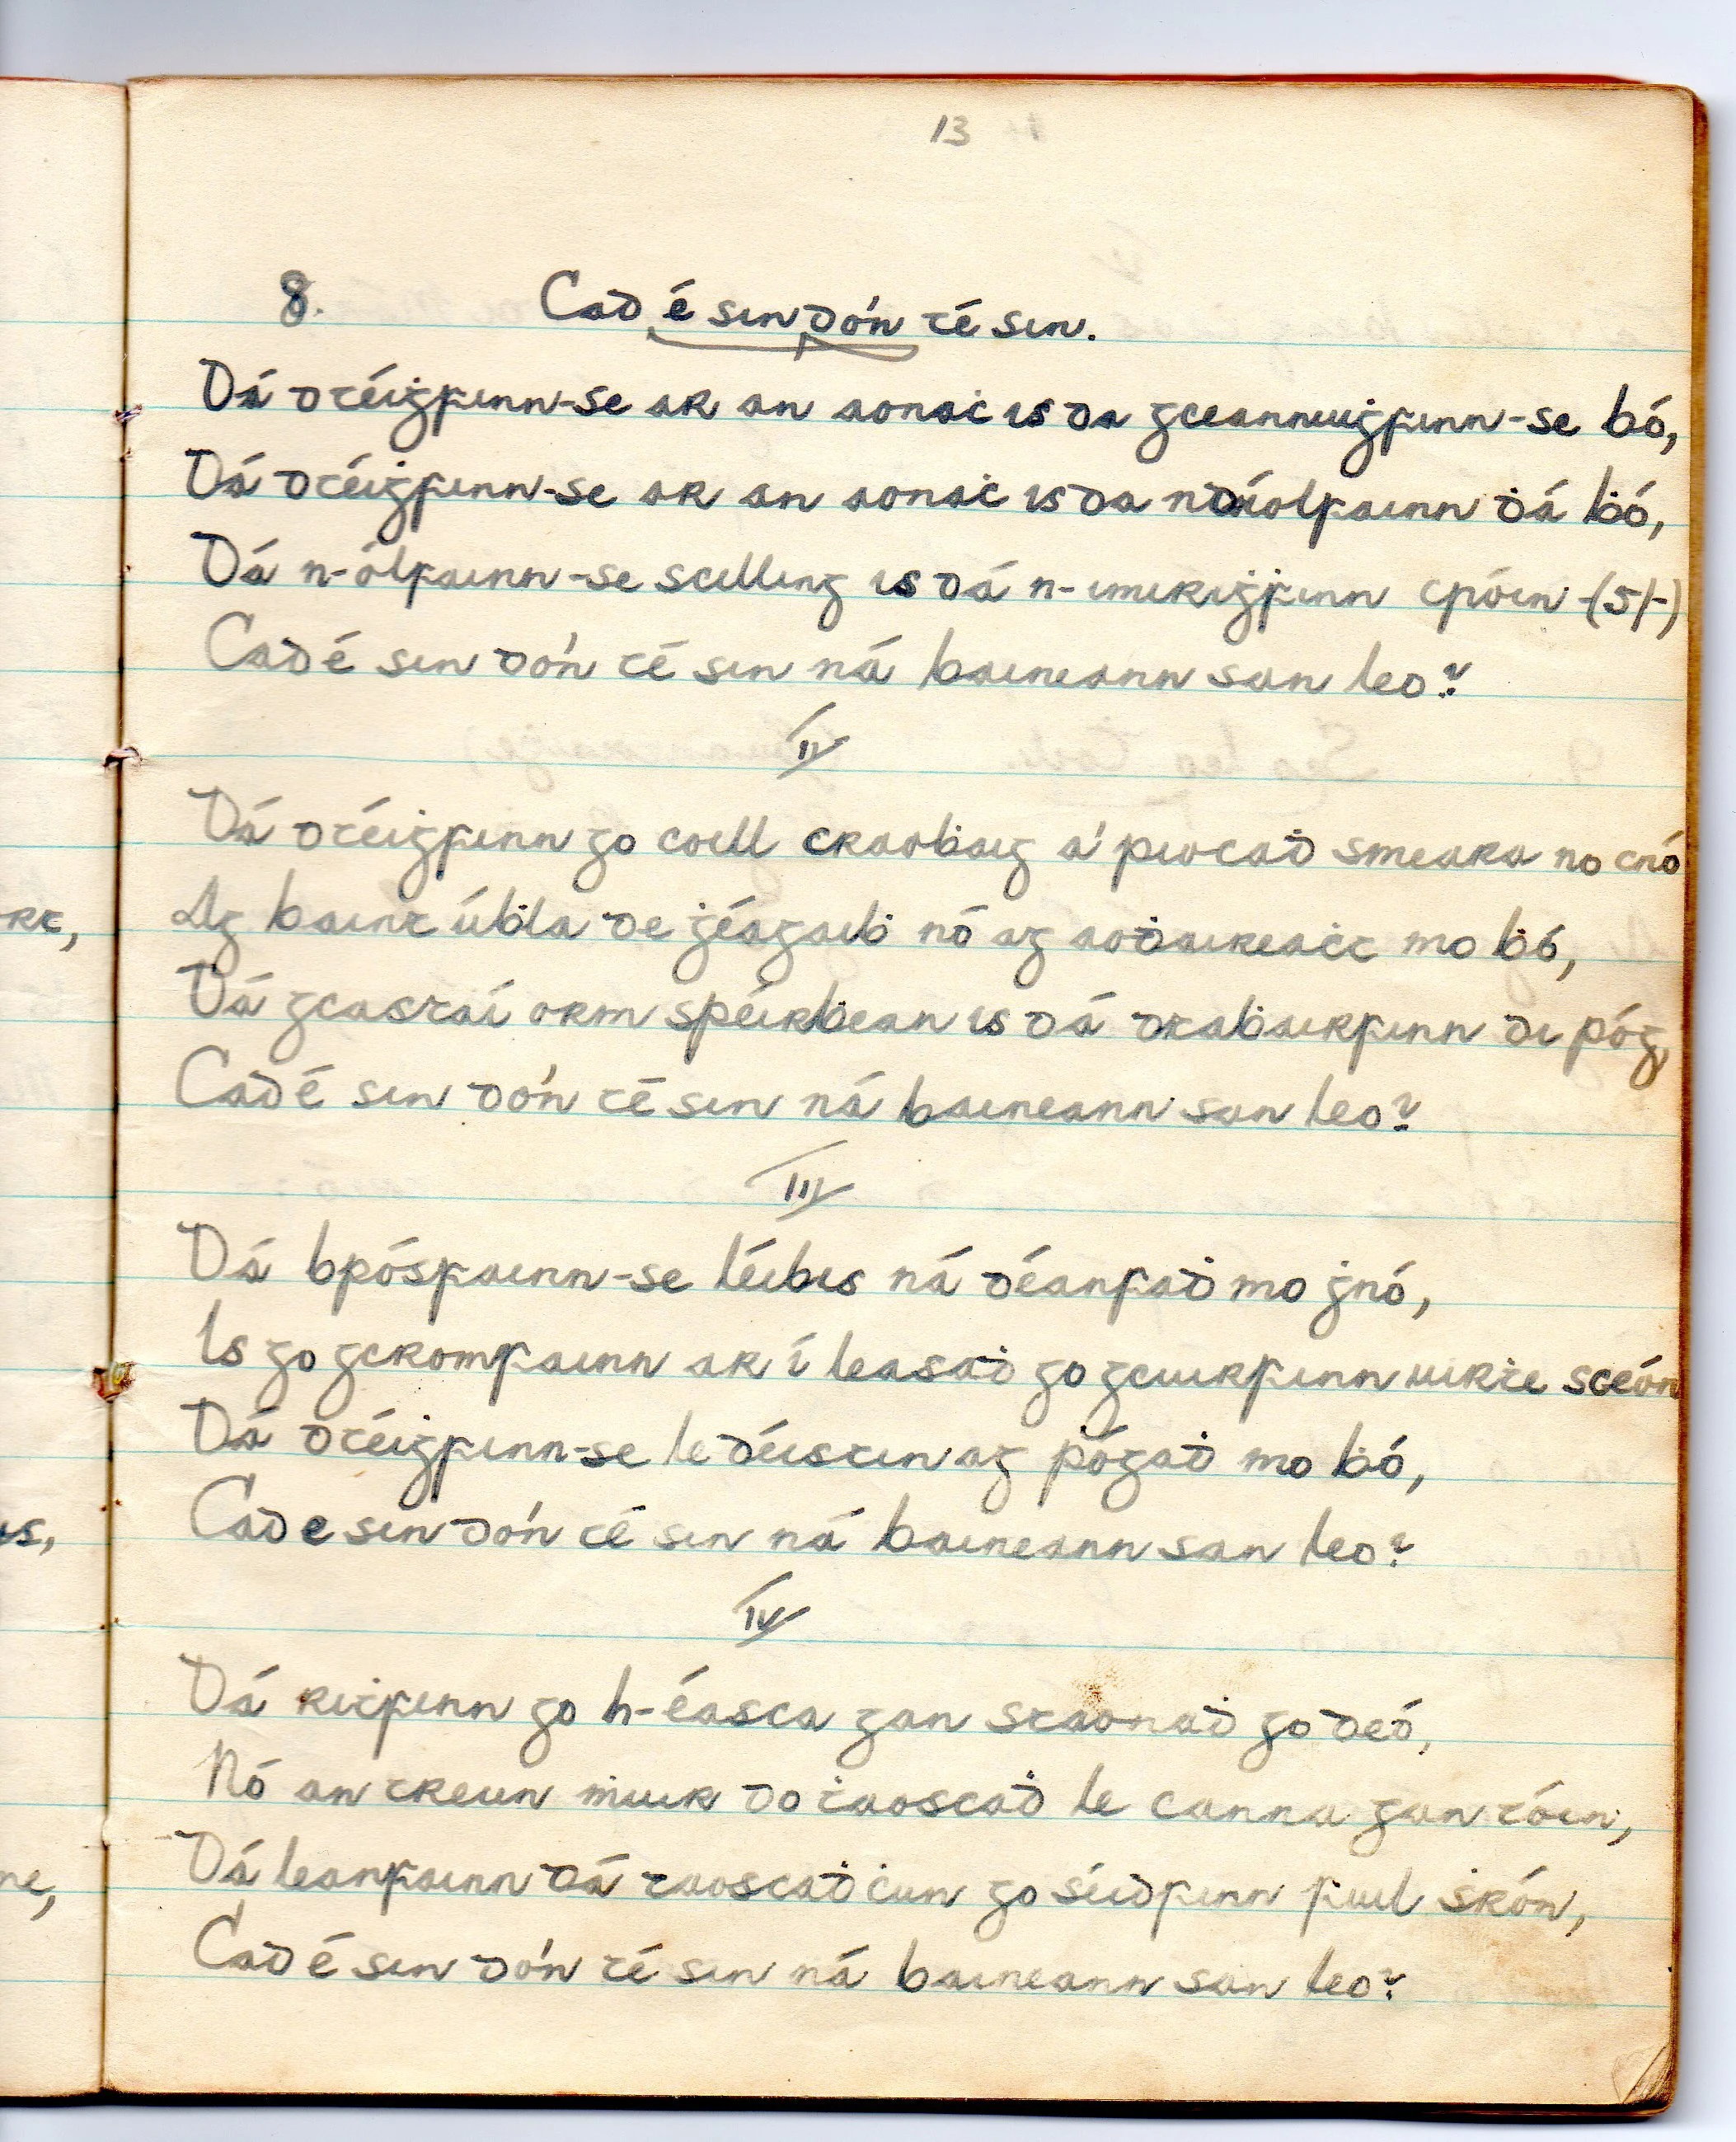 13
8. Cad é sin dó'n té sin.
Dá dtéiġfinn-se ar an aonaċ is da gceannuiġfinn-se bó,
Dá dtéiġfinn-se ar an aonaċ is da ndíolfainn ḋá ḃó,
Dá n-ólfainn-se scilling is dá n-imiriġfinn cróin -(5/-)
Cad é sin dó'n té sin ná baineann san leo?
II
Dá dtéiġfinn go coill craoḃaig a' piocaḋ smeara no cnó
Ag baint úḃla de ġéagaiḃ nó ag aoḋaireaċt mo ḃó,
Dá gcastaí orm spéirḃean is dá dtaḃairfinn di póg,
Cad é sin dó'n té sin ná baineann san leo?
III
Dá bpósfainn-se léibis ná déanfaḋ mo ġnó,
Is go gcromfainn ar í leasaḋ go gcuirfinn uirṫe sceón
Dá dtéiġfinn-se le déistin ag pógaḋ mo ḃó,
Cad e sin dó'n té sin ná baineann san leo?
IV
Dá riṫfinn go h-éasca gan staonaḋ go deó,
Nó an treun ṁuir do ṫaoscaḋ le canna gan tóin,
Dá leanfainn dá taoscaḋ ċun go séidfinn fuil ṡrón,
Cad é sin dó'n té sin ná baineann san leo?
rt,
is,
ne,